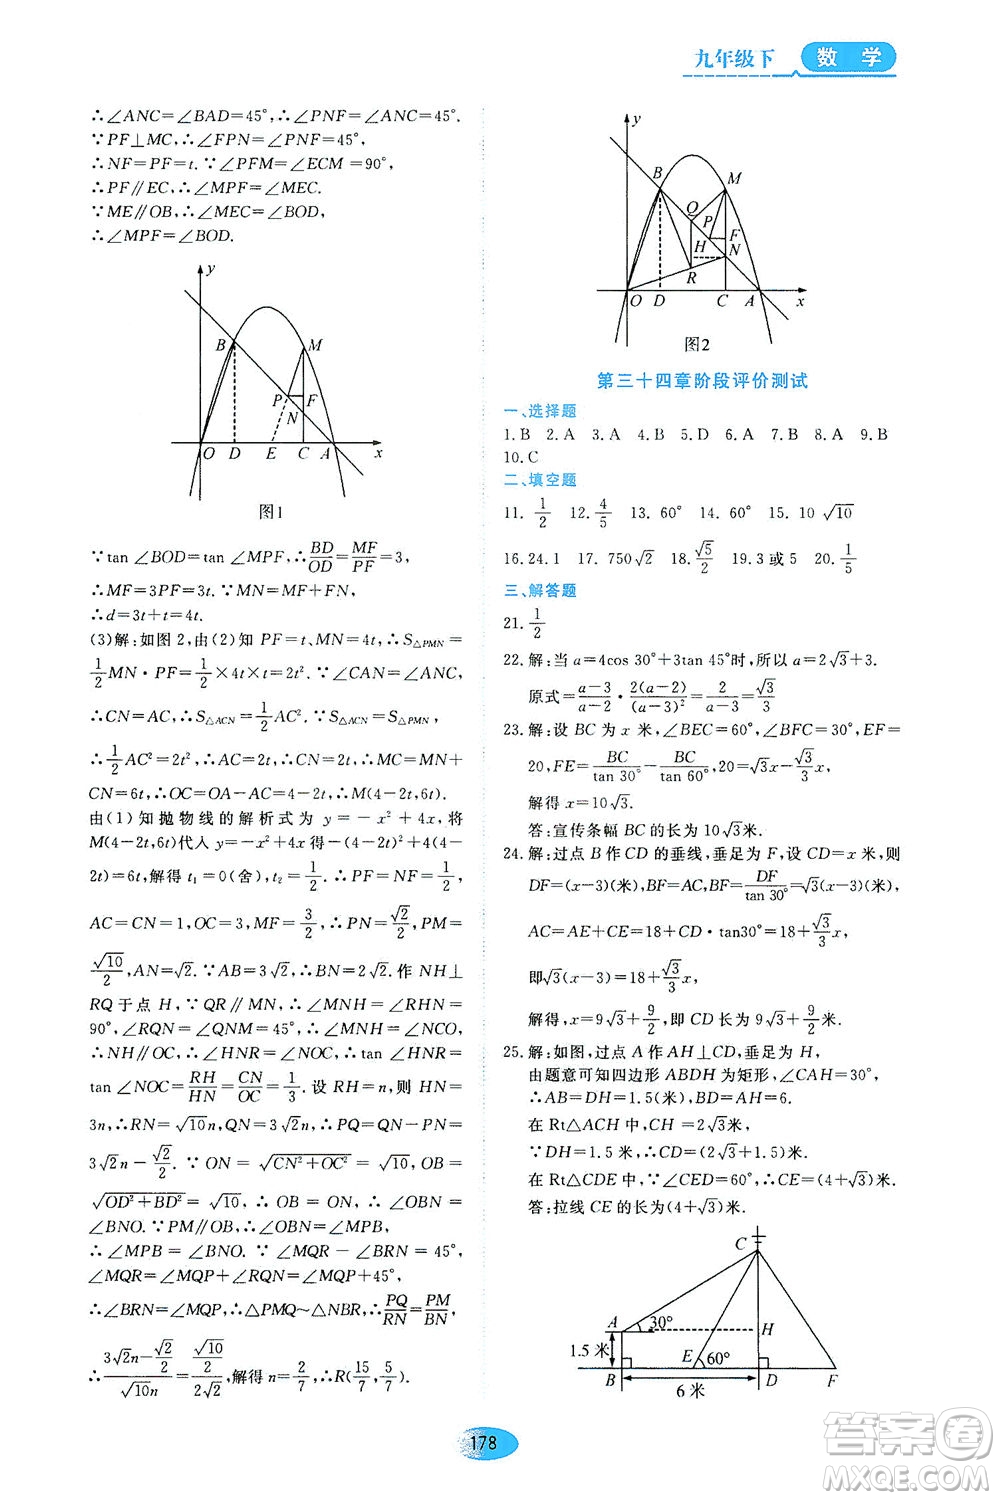 九年级下 数 学
∴∠ANC=∠BAD=45°,∴∠PNF=∠ANC=45°.
∵PF⊥MC,∴∠FPN=∠PNF=45°,
∴NF=PF=t.∵∠PFM=∠ECM=90°,
∴PF∥EC,∴∠MPF=∠MEC.
∵ME∥OB,∴∠MEC=∠BOD,
∴∠MPF=∠BOD.
y
B M
P F
N
O D E C A x
图1
∵tan ∠BOD=tan ∠MPF,∴BD/OD=MF/PF=3,
∴MF=3PF=3t.∵MN=MF+FN,
∴d=3t+t=4t.
(3)解:如图 2,由(2)知 PF=t、MN=4t,∴S△PMN=
1/2 MN·PF=1/2×4t×t=2t².∵∠CAN=∠ANC,
∴CN=AC,∴S△ACN=1/2 AC².∵S△ACN=S△PMN,
∴1/2 AC²=2t²,∴AC=2t,∴CN=2t,∴MC=MN+
CN=6t,∴OC=OA-AC=4-2t,∴M(4-2t,6t).
由(1)知抛物线的解析式为 y=-x²+4x,将
M(4-2t,6t)代入 y=-x²+4x 得-(4-2t)²+4(4-
2t)=6t,解得 t₁=0(舍),t₂=1/2,∴PF=NF=1/2,
AC=CN=1,OC=3,MF=3/2,∴PN=√2/2,PM=
√10/2,AN=√2.∵AB=3√2,∴BN=2√2.作 NH⊥
RQ于点 H,∵QR∥MN,∴∠MNH=∠RHN=
90°,∠RQN=∠QNM=45°,∴∠MNH=∠NCO,
∴NH∥OC,∴∠HNR=∠NOC,∴tan ∠HNR=
tan ∠NOC=RH/HN=CN/OC=1/3.设 RH=n,则 HN=
3n,∴RN=√10n,QN=3√2n,∴PQ=QN-PN=
3√2n-√2/2.∵ON=√(CN²+OC²)=√10,OB=
√(OD²+BD²)=√10,∴OB=ON,∴∠OBN=
∠BNO.∵PM∥OB,∴∠OBN=∠MPB,
∴∠MPB=∠BNO.∵∠MQR-∠BRN=45°,
∠MQR=∠MQP+∠RQN=∠MQP+45°,
∴∠BRN=∠MQP,∴△PMQ∽△NBR,∴PQ/RN=PM/BN,
∴(3√2n-√2/2)/√10n=(√10/2)/2√2,解得 n=2/7,∴R(15/7,5/7).
y
B M
Q
P F
H N
R
O D C A x
图2
第三十四章阶段评价测试
一、选择题
1.B 2.A 3.A 4.A 5.D 6.A 7.B 8.A 9.B
10.C
二、填空题
11. 1/2 12. 4/5 13. 60° 14. 60° 15. 10√10
16.24.1 17. 750√2 18. √5/2 19.3或5 20. 1/5
三、解答题
21. 1/2
22.解:当 a=4cos 30°+3tan 45°时,所以 a=2√3+3.
原式=(a-3)/(a-2)·2(a-2)/(a-3)²=2/(a-3)=√3/3
23.解:设 BC 为 x 米,∠BEC=60°,∠BFC=30°,EF=
20,FE=BC/tan 30°-BC/tan 60°,20=√3x-√3/3 x,
解得 x=10√3.
答:宣传条幅 BC 的长为 10√3米.
24.解:过点 B 作 CD 的垂线,垂足为 F,设 CD=x 米,则
DF=(x-3)(米),BF=AC,BF=DF/tan 30°=√3(x-3),
AC=AE+CE=18+CD·tan30°=18+√3/3 x,
即√3(x-3)=18+√3/3 x,
解得,x=9√3+9/2,即 CD 长为 9√3+9/2米.
25.解:如图,过点 A 作 AH⊥CD,垂足为 H,
由题意可知四边形 ABDH 为矩形,∠CAH=30°,
∴AB=DH=1.5(米),BD=AH=6.
在 Rt△ACH 中,CH=2√3米,
∵DH=1.5,∴CD=(2√3+1.5)米,
在 Rt△CDE 中,∵∠CED=60°,∴CE=(4+√3)米,
答:拉线 CE 的长为(4+√3)米.
C
A 30° H
1.5 米
E 60°
B 6 米 D F
178
答案圈
MXQE.COM